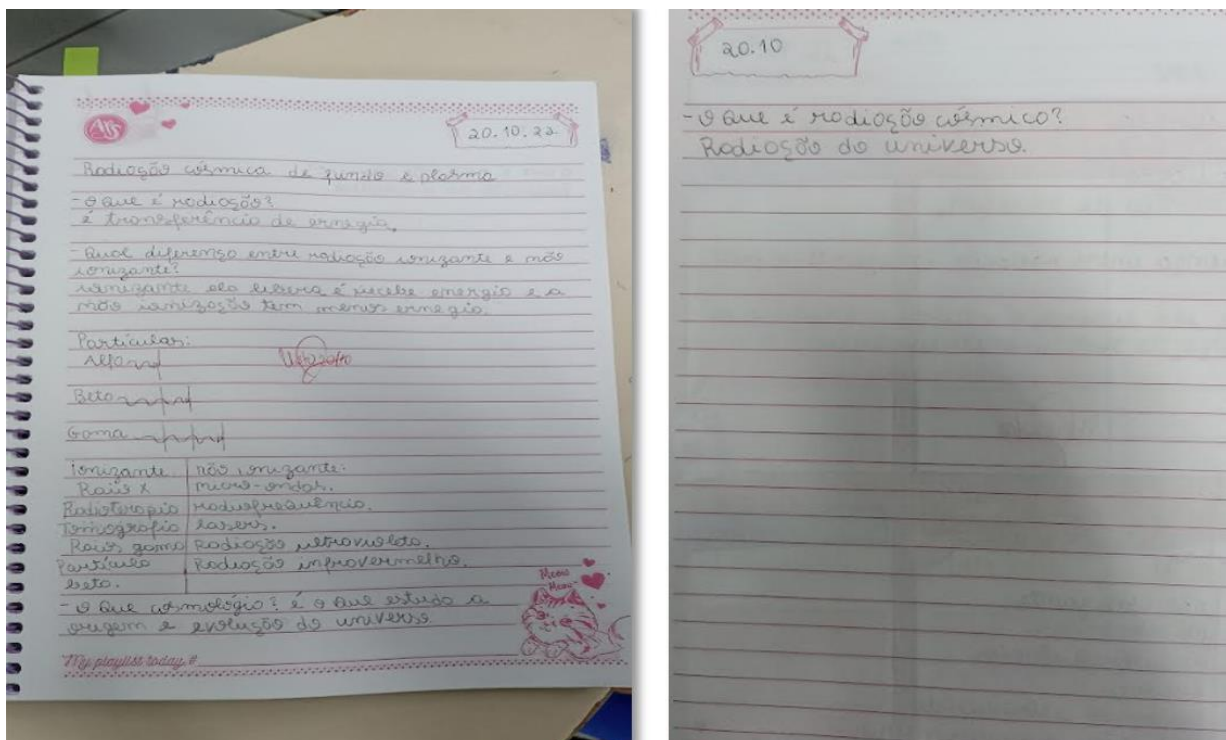 20.10.22
Radiação cósmica de fundo e plasma
- O que é radiação?
é transferência de ernegia.
- Qual diferença entre radiação ionizante e não
ionizante?
ionizante ela libera é recebe energia e a
não ionização tem menos ernegia.
Partículas:
Alfa
Beta
Gama
ionizante
não ionizante:
Raios X
micro-ondas.
Radioterapia
radiofrequência.
Tomografia
lasers.
Raios gama
Radiação ultravioleta.
Partícula
Radiação infravermelha.
beta.
- O que cosmológia? é o que estuda a
origem e evolução do universo
Meow
Meow
My playlist today #
20.10
- O que é radiação cósmica?
Radiação do universo.